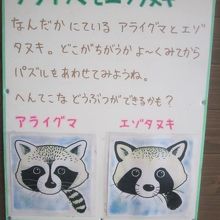 なんだかにている アライグマとエゾタ
ヌキ。どこがちがうか よ〜くみてから
パズルをあわせてみようね。
へんてこな どうぶつができるかも？
アライグマ
エゾタヌキ